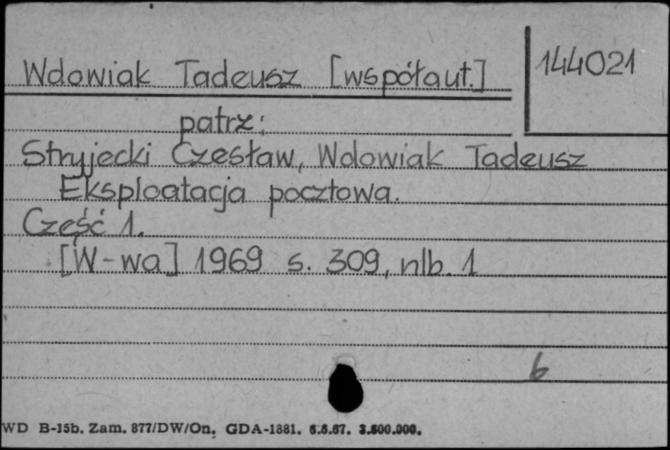 Wdowiak Tadeusz [współaut.]
144021
patrz:
Stryjecki Czesław, Wdowiak Tadeusz
Eksploatacja pocztowa.
Część 1.
[W-wa] 1969 s. 309, nlb. 1
b
WD B-15b. Zam. 877/DW/On. GDA-1881. 6.6.67. 3.600.000.